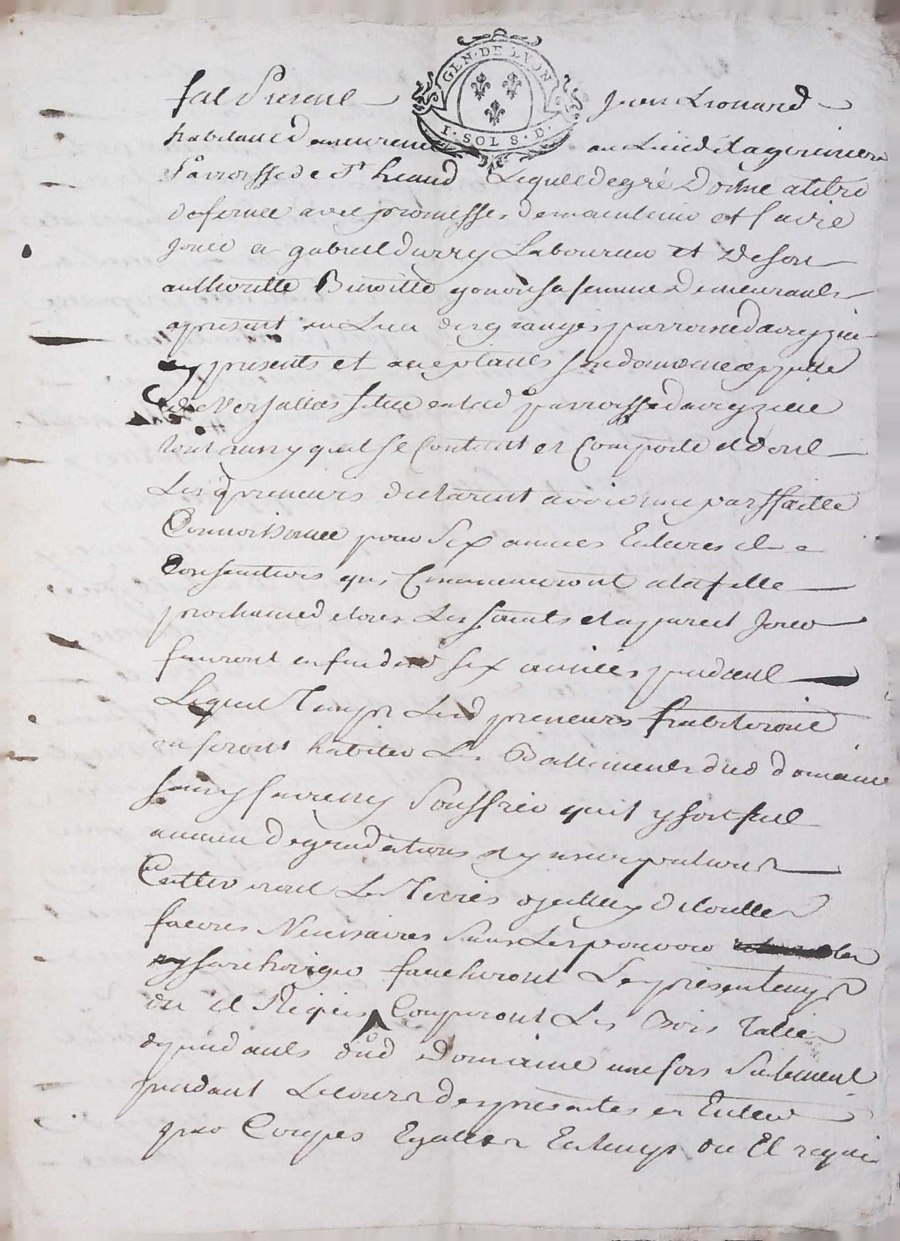 GEN. DE LYON
I. SOL 8. D.
fut Present Jean Liouard
habitant demeurant au Lieu de Lagoniniere
Parroisse de St heand Lequel de gré Donne a titre
de ferme avec promesses de maintenir et faire
jouir a gabriel durry Laboureur et De son
authoritté Benoitte sa femme Demeurants
apresent au Lieu des granges parroisse daveyzieu
presents et acceptants son domaine appellé
de Versailles situé en lad parroisse daveyzieu
tout ainsy quil se Contient et Comporte et dont
Les preneurs declarent avoir une parffaitte
Connoissance pour Six années Entieres et
Consecutives qui Commenceront a la fette
prochaine de tous Les saints et a pareil Jour
finiront en fin de six années pendant
Lequel Temps Lesd preneurs habiteront
ou feront habiter Les Battiments dud domaine
sans Souffrir quil y soit fait
aucunes degradations ny usurpations
Cultiveront Les Terres de toutes
facons Necessaires Sans Les pouvoir
faucheront Les prés en temps
du et Requis Couperont Les Bois Tallis
dependants dud Domaine une fois Seulement
pendant Le cours des presentes en
par Coupes Egalles En temps du Et requis